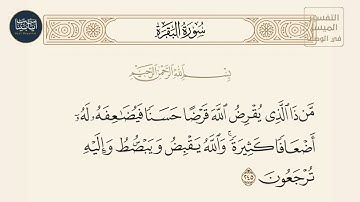 سُورَةُ البَقَرَةِ
التفسير
الميسر
في الوصف
بِسْمِ اللَّهِ الرَّحْمَٰنِ الرَّحِيمِ
مَّن ذَا الَّذِي يُقْرِضُ اللَّهَ قَرْضًا حَسَنًا فَيُضَٰعِفَهُۥ لَهُۥٓ
أَضْعَافًا كَثِيرَةً ۚ وَاللَّهُ يَقْبِضُ وَيَبْصُۜطُ وَإِلَيْهِ
تُرْجَعُونَ ٢٤٥